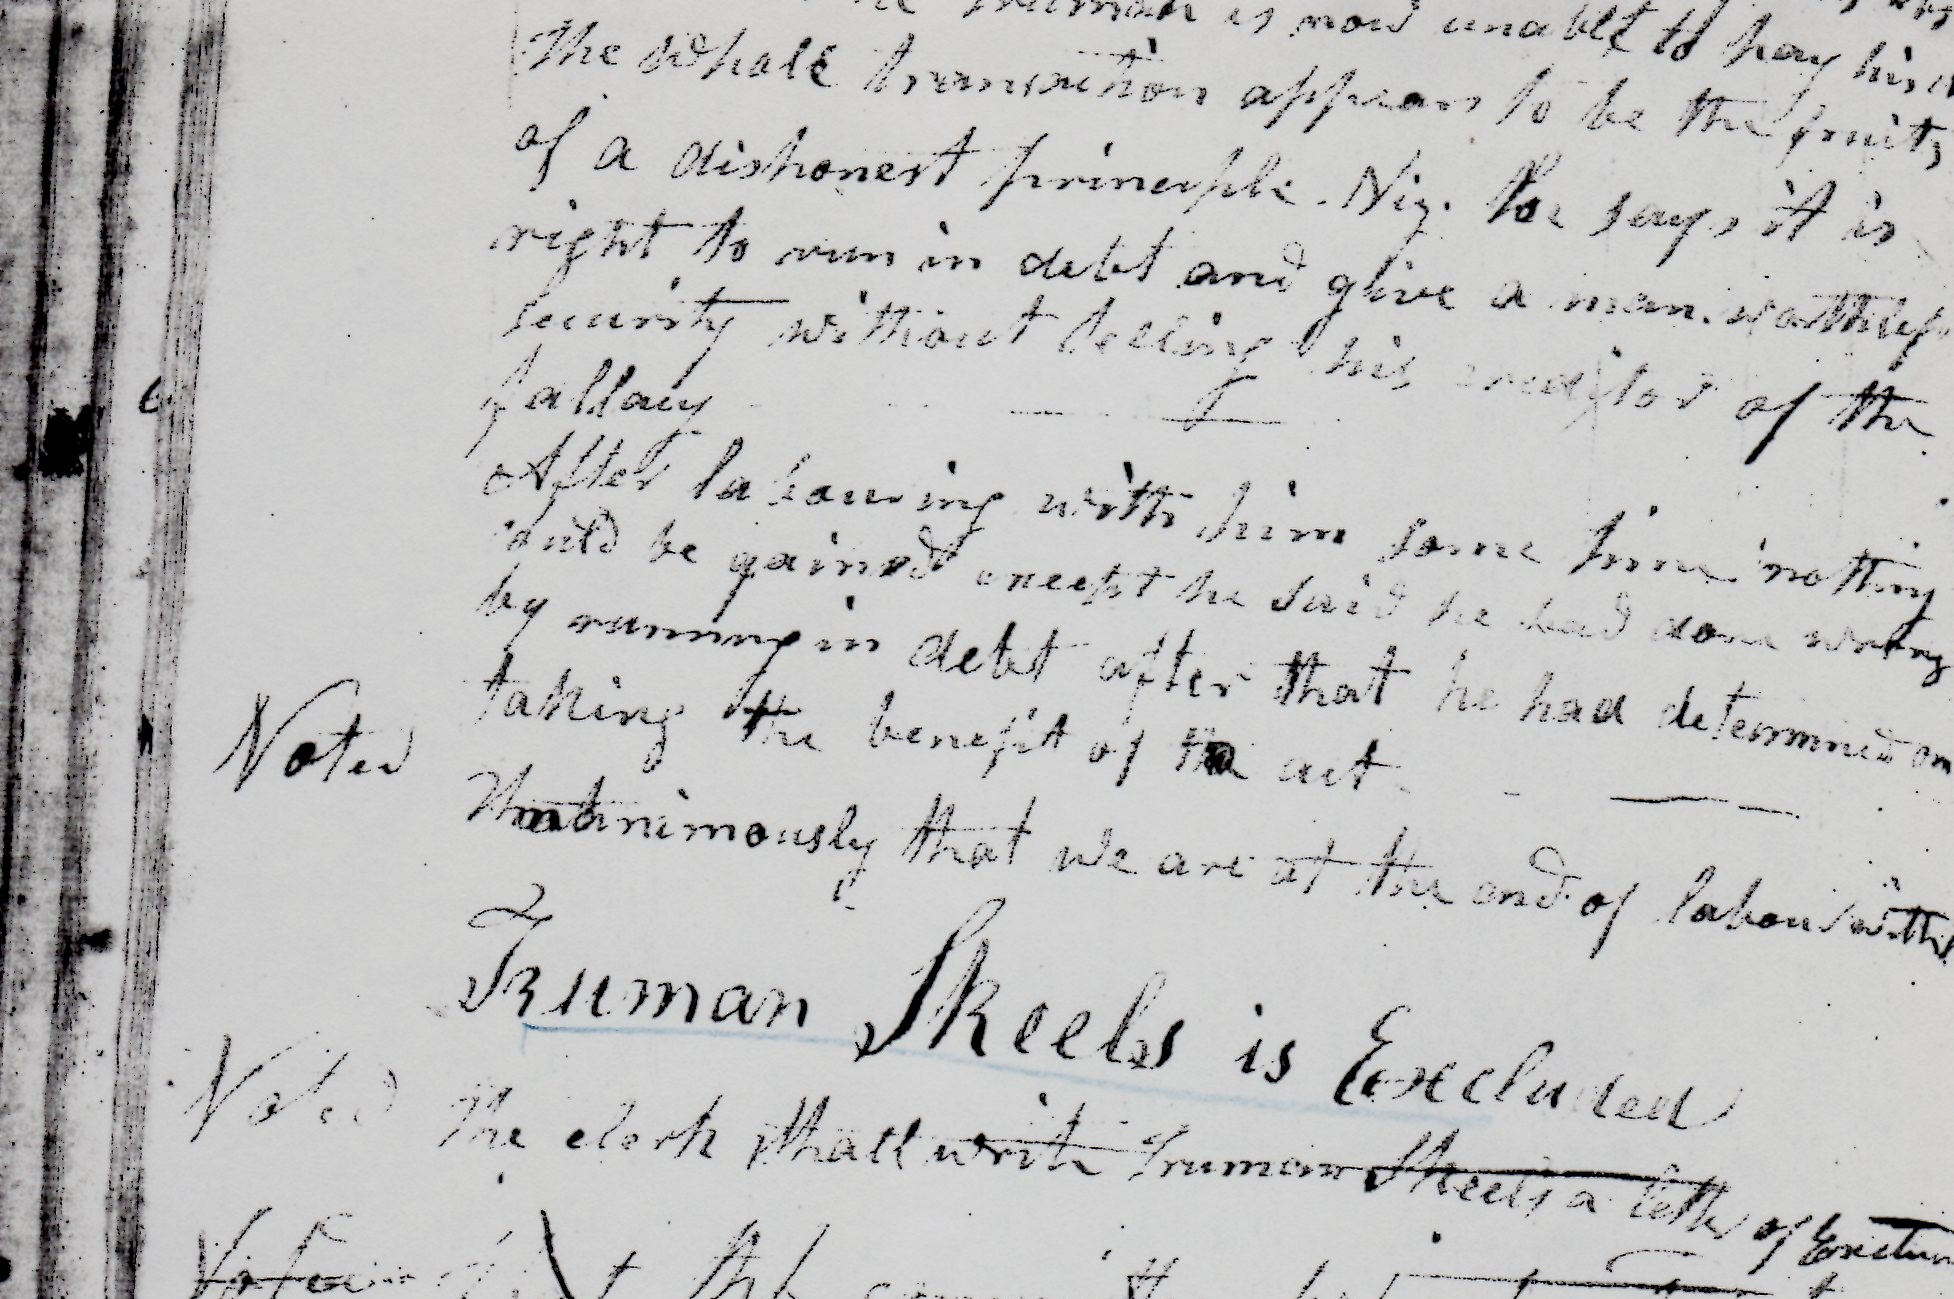 Truman is now unable to pay his
The whole transaction appears to be the fruits
of a dishonest principle. Viz. he says it is
right to run in debt and give a man worthless
security without telling his creditor of the
fallacy
After labouring with him some time nothing
could be gained except he said he had done wrong
by running in debt after that he had determined on
taking the benefit of the act
Voted
that unanimously that we are at the end of labour with
Truman Skeels is Excluded
Voted The clerk shall write Truman Skeels a letter of
Voted that the